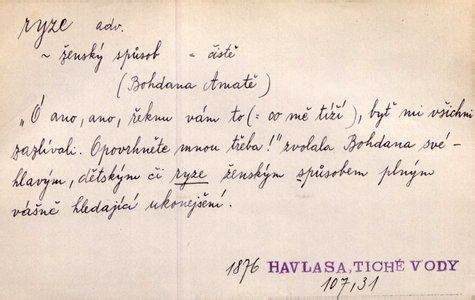 ryze adv.
~ ženský způsob = čistě
(Bohdana Amatě)
„Ó ano, ano, řeknu vám to (= co mě tíží), byť mi všichni
zazlívali. Opovrhněte mnou třeba!" zvolala Bohdana své-
hlavým, dětským či ryze ženským způsobem plným
vášně hledající ukonejšení.
1876 HAVLASA, TICHÉ VODY
107,31